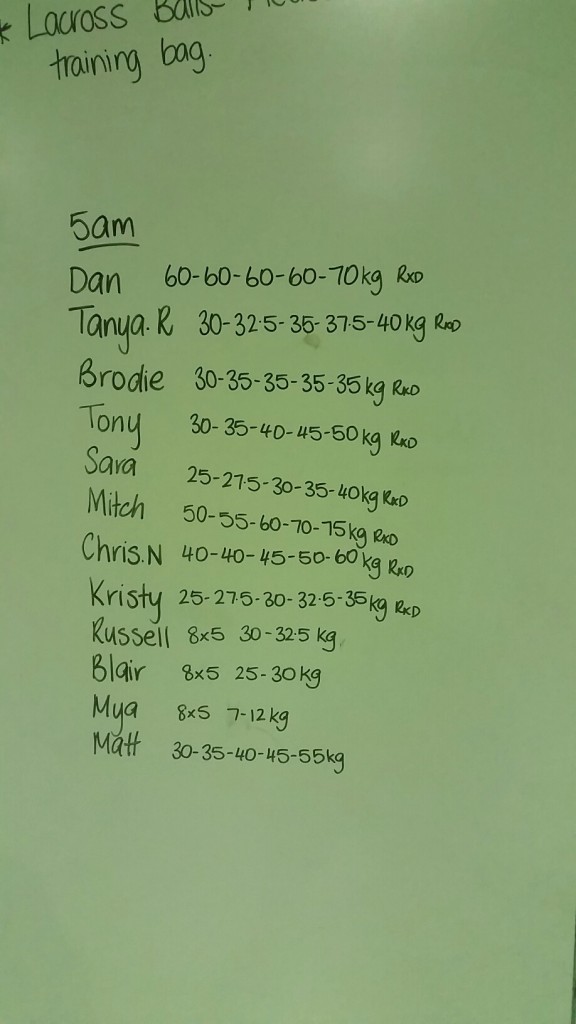 * Lacross Balls-
training bag.
5am
Dan 60-60-60-60-70kg RXD
Tanya.R 30-32.5-35-37.5-40kg RXD
Brodie 30-35-35-35-35kg RXD
Tony 30-35-40-45-50kg RXD
Sara 25-27.5-30-35-40kg RXD
Mitch 50-55-60-70-75kg RXD
Chris.N 40-40-45-50-60kg RXD
Kristy 25-27.5-30-32.5-35kg RXD
Russell 8x5 30-32.5 kg
Blair 8x5 25-30kg
Mya 8x5 7-12kg
Matt 30-35-40-45-55kg